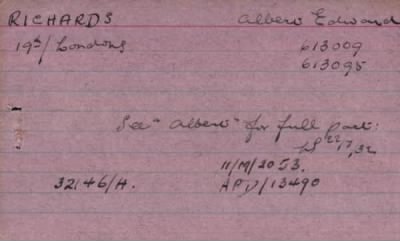 RICHARDS Albert Edward
19th/Londons 613009
613095
See "Albert" for full part:
22,7,32
11/M/2053.
32146/H. APD/13490